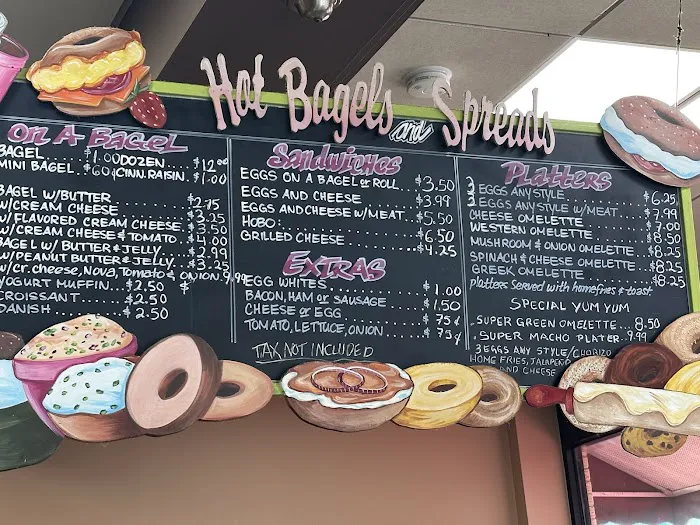 Hot Bagels and Spreads
On A Bagel
BAGEL $1.00 DOZEN $12.00
MINI BAGEL $.60¢ CINN. RAISIN $1.00
BAGEL W/BUTTER $2.75
W/CREAM CHEESE $3.25
W/FLAVORED CREAM CHEESE $3.50
W/CREAM CHEESE & TOMATO $4.00
BAGEL W/ BUTTER & JELLY $2.99
W/PEANUT BUTTER & JELLY $3.25
W/cr.cheese, Nova, Tomato & ONION $9.99
YOGURT MUFFIN $2.50
CROISSANT $2.50
DANISH $2.50
Sandwiches
EGGS ON A BAGEL or ROLL $3.50
EGGS AND CHEESE $3.99
EGGS AND CHEESE W/MEAT $5.50
HOBO: $6.50
GRILLED CHEESE $4.25
Extras
EGG WHITES $1.00
BACON, HAM or SAUSAGE $1.50
CHEESE or EGG 75¢
TOMATO, LETTUCE, ONION 75¢
TAX NOT INCLUDED
Platters
3 EGGS ANY STYLE $6.25
3 EGGS ANY STYLE W/MEAT 7.99
CHEESE OMELETTE $7.00
WESTERN OMELETTE 8.50
MUSHROOM & ONION OMELETTE $8.25
SPINACH & CHEESE OMELETTE $8.25
GREEK OMELETTE $8.25
platters Served with homefries & toast.
SPECIAL YUM YUM
SUPER GREEN OMELETTE 8.50
SUPER MACHO PLATER 9.99
3 EGGS ANY STYLE/CHORIZO
HOME FRIES, JALAPEÑO
AND CHEESE